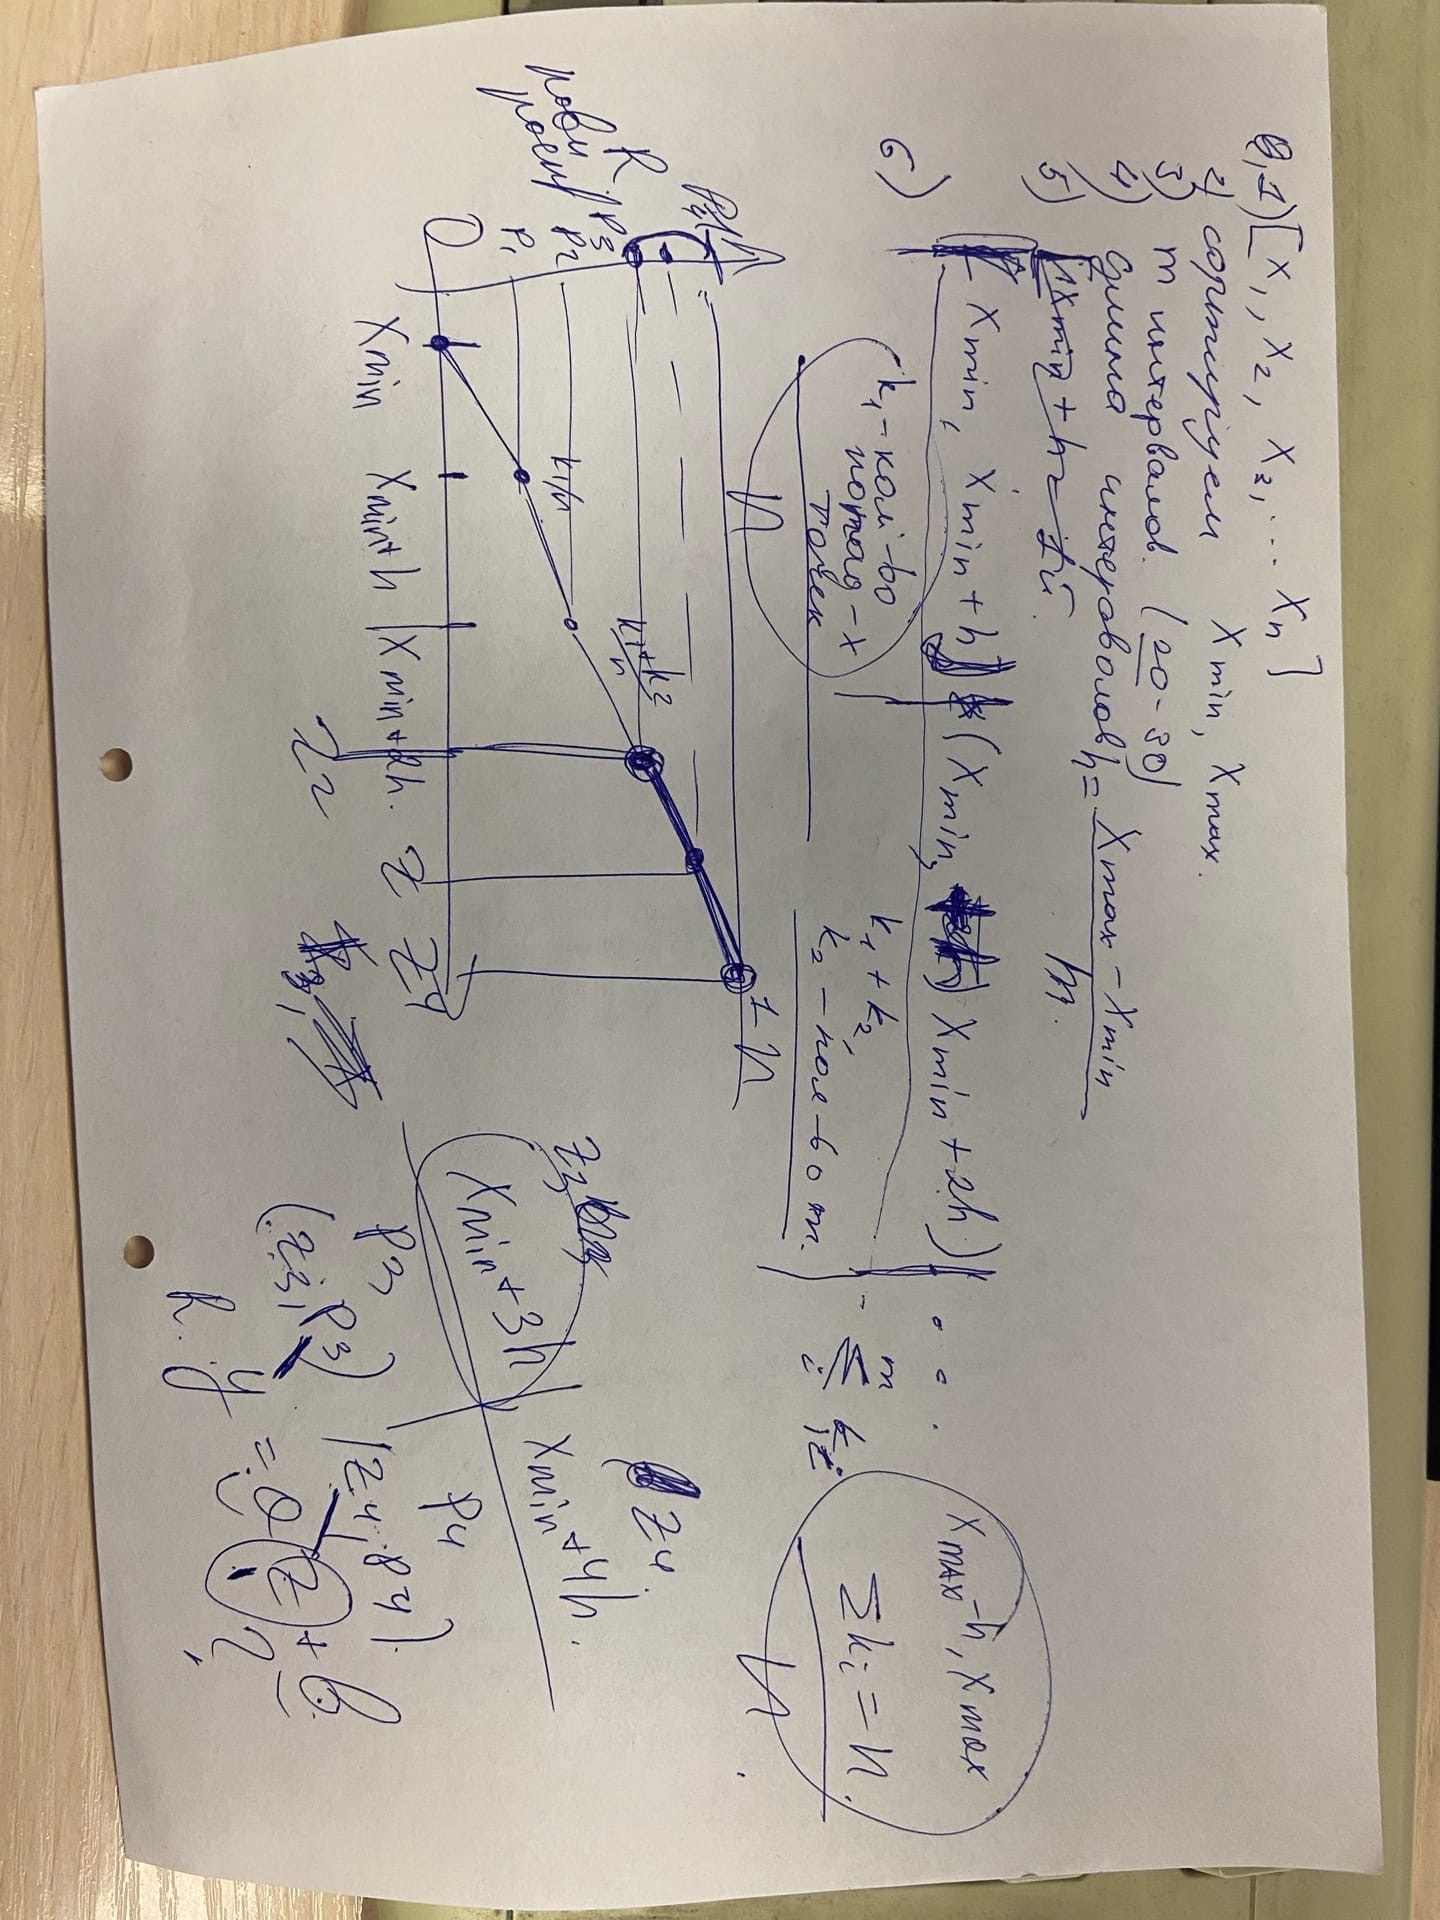 1) [x₁, x₂, x₃, ... xₙ]
2) сортируем Xmin, Xmax.
3) m интервалов. (20 - 30)
4) длина интероволов h = (Xmax - Xmin) / m.
5) Xmin + h = 1й.
[Xmin, Xmin + h] (Xmin, Xmin + 2h) . . . Xmax - h, Xmax
6) k₁ - кол-во
попад-х
точек
n
k₁ + k₂,
k₂ - кол-во т.
m
Σ kᵢ
i
Σkᵢ = n.
n
1 n
P4
R
P3
P2
P₁
0
k₁/n
k₁+k₂
n
Xmin Xmin+h Xmin+2h. Z Z4
Z2
Z3 Z4.
Xmin+3h Xmin+4h.
P3 P4
(Z3, P3) (Z4, P4).
R. y = a Z + b
?